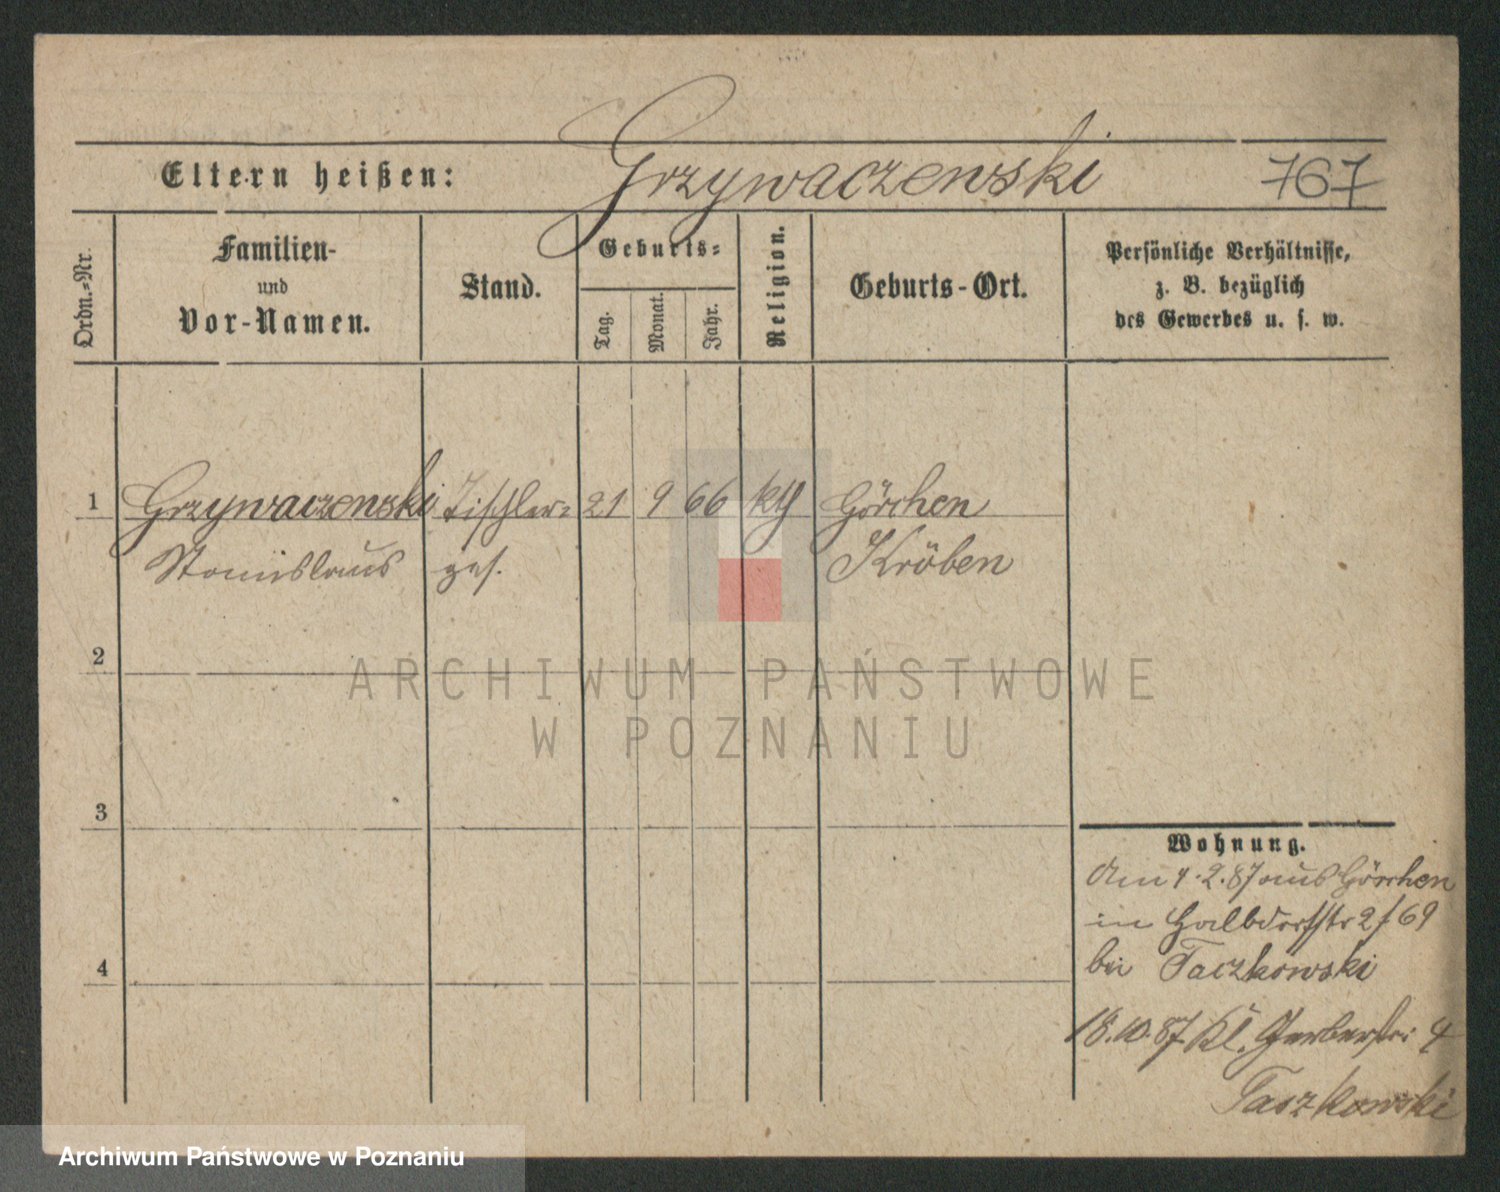 Eltern heißen: Grzywaczewski 767
Ordn.-Nr.
Familien-
und
Vor-Namen.
Stand.
Geburts-
Tag.
Monat.
Jahr.
Religion.
Geburts-Ort.
Persönliche Verhältnisse,
z. B. bezüglich
des Gewerbes u. s. w.
1 Grzywaczewski Tischler= 21 9 66 kth Görchen
Stanislaus ges. Kröben
2
ARCHIWUM PAŃSTWOWE
W POZNANIU
3
Wohnung.
Am 4.2.87 aus Görchen
in Halbdorfstr 2/69
4
bei Taczkowski
18.10.87 Kl. Gerberstr: 4
Taczkowski
Archiwum Państwowe w Poznaniu